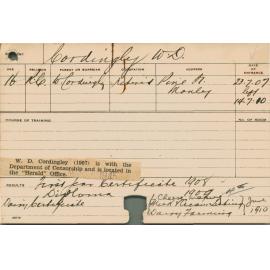 Cordingley W.D.
AGE PARENT OR GUARDIAN OCCUPATION ADDRESS DATE OF ENTRANCE
16 R.C. W Cordingley Retired Pine St. 23.7.07
Manley left
14.7.10
COURSE OF TRAINING No. OF ROOM
W. D. Cordingley (1907) is with the
Department of Censorship and is located in
the "Herald" Office.
RESULTS First Year Certificate 1908
Diploma 1909
Dairy Certificate Cheese Making
Milk Record Testing June
Dairy Farming 1910